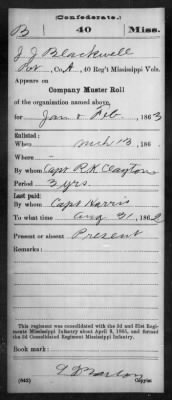 (Confederate.)
B 40 Miss.
J J Blackwell
Pvt, Co. A, 40 Reg't Mississippi Vols.
Appears on
Company Muster Roll
of the organization named above,
for Jan & Feb, 1863
Enlisted:
When Mch 13, 186
Where -
By whom Capt R. K. Clayton
Period 3 yrs.
Last paid:
By whom Capt Harris
To what time Aug 31, 1862
Present or absent Present
Remarks:
This regiment was consolidated with the 3d and 31st Regiments Mississippi Infantry about April 9, 1865, and formed the 3d Consolidated Regiment Mississippi Infantry.
Book mark:
(642) Barlow
Copyist.